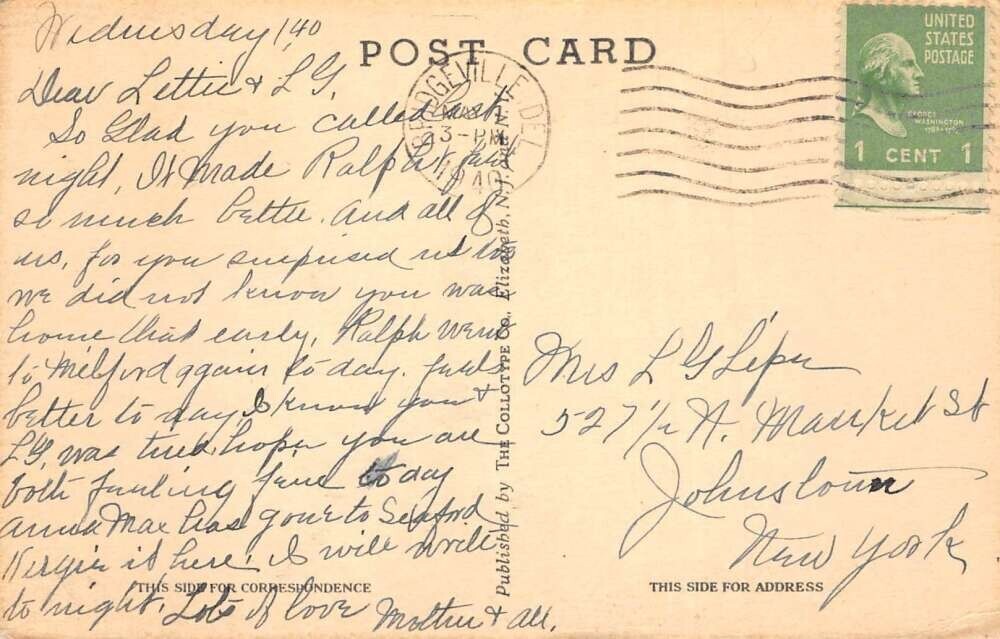 Wednesday 1,40
POST CARD
Dear Lettie & L G,
So Glad you called last
night, It made Ralph feel
so much bettie. And all of
us, for you surprised us
we did not know you was
home that early, Ralph went
to Milford again to day. feels
better to day, I know you &
L G, was tired, hope you are
both feeling fine to day
Anna Mae has gone to Seaford
is here. I will write
to night. Lots of love Mother & all.
THIS SIDE FOR CORRESPONDENCE
Published by THE COLLOTYPE CO., Elizabeth, N.J. and N.Y.
BRIDGEVILLE, DEL.
3-PM
1940
UNITED
STATES
POSTAGE
GEORGE
WASHINGTON
1 CENT 1
Mrs L G Siper
527 1/2 N. Market St
Johnstown
New York
THIS SIDE FOR ADDRESS